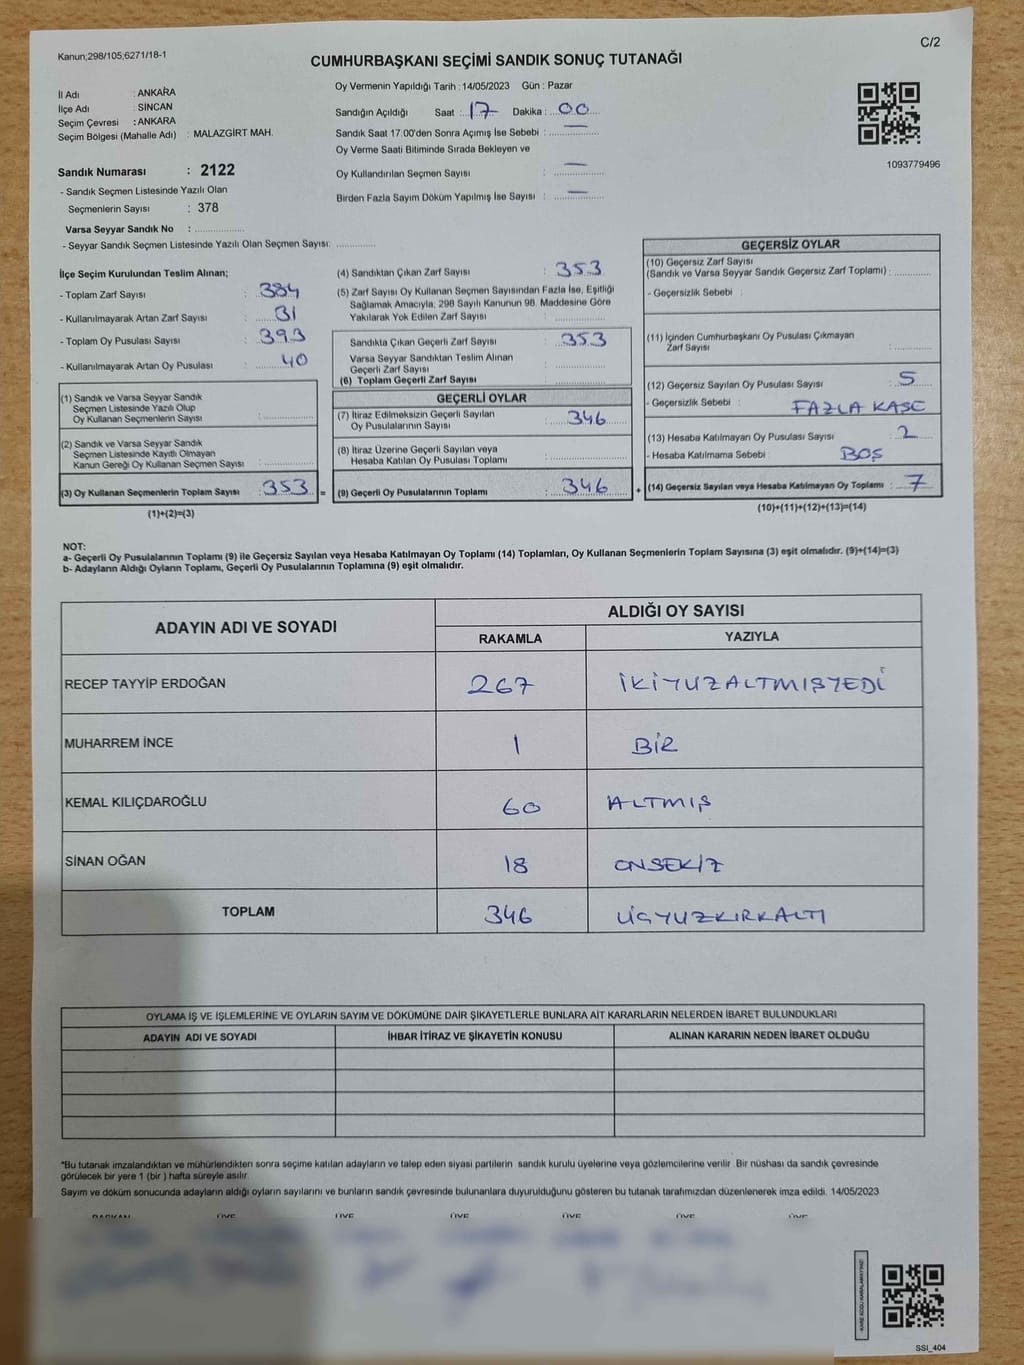 Kanun;298/105;6271/18-1
C/2
CUMHURBAŞKANI SEÇİMİ SANDIK SONUÇ TUTANAĞI
İl Adı : ANKARA
İlçe Adı : SİNCAN
Seçim Çevresi : ANKARA
Seçim Bölgesi (Mahalle Adı) : MALAZGİRT MAH.
Sandık Numarası : 2122
- Sandık Seçmen Listesinde Yazılı Olan
Seçmenlerin Sayısı : 378
Varsa Seyyar Sandık No : ..............
- Seyyar Sandık Seçmen Listesinde Yazılı Olan Seçmen Sayısı: ............
Oy Vermenin Yapıldığı Tarih : 14/05/2023 Gün : Pazar
Sandığın Açıldığı Saat : 17 Dakika : 00
Sandık Saat 17:00'den Sonra Açımış İse Sebebi : —
Oy Verme Saati Bitiminde Sırada Bekleyen ve
Oy Kullandırılan Seçmen Sayısı : —
Birden Fazla Sayım Döküm Yapılmış İse Sayısı : —
1093779496
İlçe Seçim Kurulundan Teslim Alınan;
- Toplam Zarf Sayısı : 384
- Kullanılmayarak Artan Zarf Sayısı : 31
- Toplam Oy Pusulası Sayısı : 393
- Kullanılmayarak Artan Oy Pusulası : 40
(1) Sandık ve Varsa Seyyar Sandık
Seçmen Listesinde Yazılı Olup
Oy Kullanan Seçmenlerin Sayısı :
(2) Sandık ve Varsa Seyyar Sandık
Seçmen Listesinde Kayıtlı Olmayan
Kanun Gereği Oy Kullanan Seçmen Sayısı :
(3) Oy Kullanan Seçmenlerin Toplam Sayısı : 353 =
(1)+(2)=(3)
(4) Sandıktan Çıkan Zarf Sayısı : 353
(5) Zarf Sayısı Oy Kullanan Seçmen Sayısından Fazla İse, Eşitliği
Sağlamak Amacıyla; 298 Sayılı Kanunun 98. Maddesine Göre
Yakılarak Yok Edilen Zarf Sayısı :
Sandıkta Çıkan Geçerli Zarf Sayısı : 353
Varsa Seyyar Sandıktan Teslim Alınan
Geçerli Zarf Sayısı :
(6) Toplam Geçerli Zarf Sayısı :
GEÇERLİ OYLAR
(7) İtiraz Edilmeksizin Geçerli Sayılan
Oy Pusulalarının Sayısı : 346
(8) İtiraz Üzerine Geçerli Sayılan veya
Hesaba Katılan Oy Pusulası Toplamı :
(9) Geçerli Oy Pusulalarının Toplamı : 346 +
GEÇERSİZ OYLAR
(10) Geçersiz Zarf Sayısı
(Sandık ve Varsa Seyyar Sandık Geçersiz Zarf Toplamı) :
- Geçersizlik Sebebi :
(11) İçinden Cumhurbaşkanı Oy Pusulası Çıkmayan
Zarf Sayısı :
(12) Geçersiz Sayılan Oy Pusulası Sayısı : 5
- Geçersizlik Sebebi : FAZLA KAŞE
(13) Hesaba Katılmayan Oy Pusulası Sayısı : 2
- Hesaba Katılmama Sebebi : BOŞ
(14) Geçersiz Sayılan veya Hesaba Katılmayan Oy Toplamı : 7
(10)+(11)+(12)+(13)=(14)
NOT:
a- Geçerli Oy Pusulalarının Toplamı (9) ile Geçersiz Sayılan veya Hesaba Katılmayan Oy Toplamı (14) Toplamları, Oy Kullanan Seçmenlerin Toplam Sayısına (3) eşit olmalıdır. (9)+(14)=(3)
b- Adayların Aldığı Oyların Toplamı, Geçerli Oy Pusulalarının Toplamına (9) eşit olmalıdır.
ADAYIN ADI VE SOYADI ALDIĞI OY SAYISI
RAKAMLA YAZIYLA
RECEP TAYYİP ERDOĞAN 267 İKİYUZALTMIŞYEDİ
MUHARREM İNCE 1 BİR
KEMAL KILIÇDAROĞLU 60 ALTMIŞ
SİNAN OĞAN 18 ONSEKİZ
TOPLAM 346 ÜÇYUZKIRKALTI
OYLAMA İŞ VE İŞLEMLERİNE VE OYLARIN SAYIM VE DÖKÜMÜNE DAİR ŞİKAYETLERLE BUNLARA AİT KARARLARIN NELERDEN İBARET BULUNDUKLARI
ADAYIN ADI VE SOYADI İHBAR İTİRAZ VE ŞİKAYETİN KONUSU ALINAN KARARIN NEDEN İBARET OLDUĞU
*Bu tutanak imzalandıktan ve mühürlendikten sonra seçime katılan adayların ve talep eden siyasi partilerin sandık kurulu üyelerine veya gözlemcilerine verilir .Bir nüshası da sandık çevresinde
görülecek bir yere 1 (bir ) hafta süreyle asılır.
Sayım ve döküm sonucunda adayların aldığı oyların sayılarını ve bunların sandık çevresinde bulunanlara duyurulduğunu gösteren bu tutanak tarafımızdan düzenlenerek imza edildi. 14/05/2023
BAŞKAN ÜYE ÜYE ÜYE ÜYE ÜYE ÜYE
KARE KODU KARALAMAYINIZ!
SSI_404